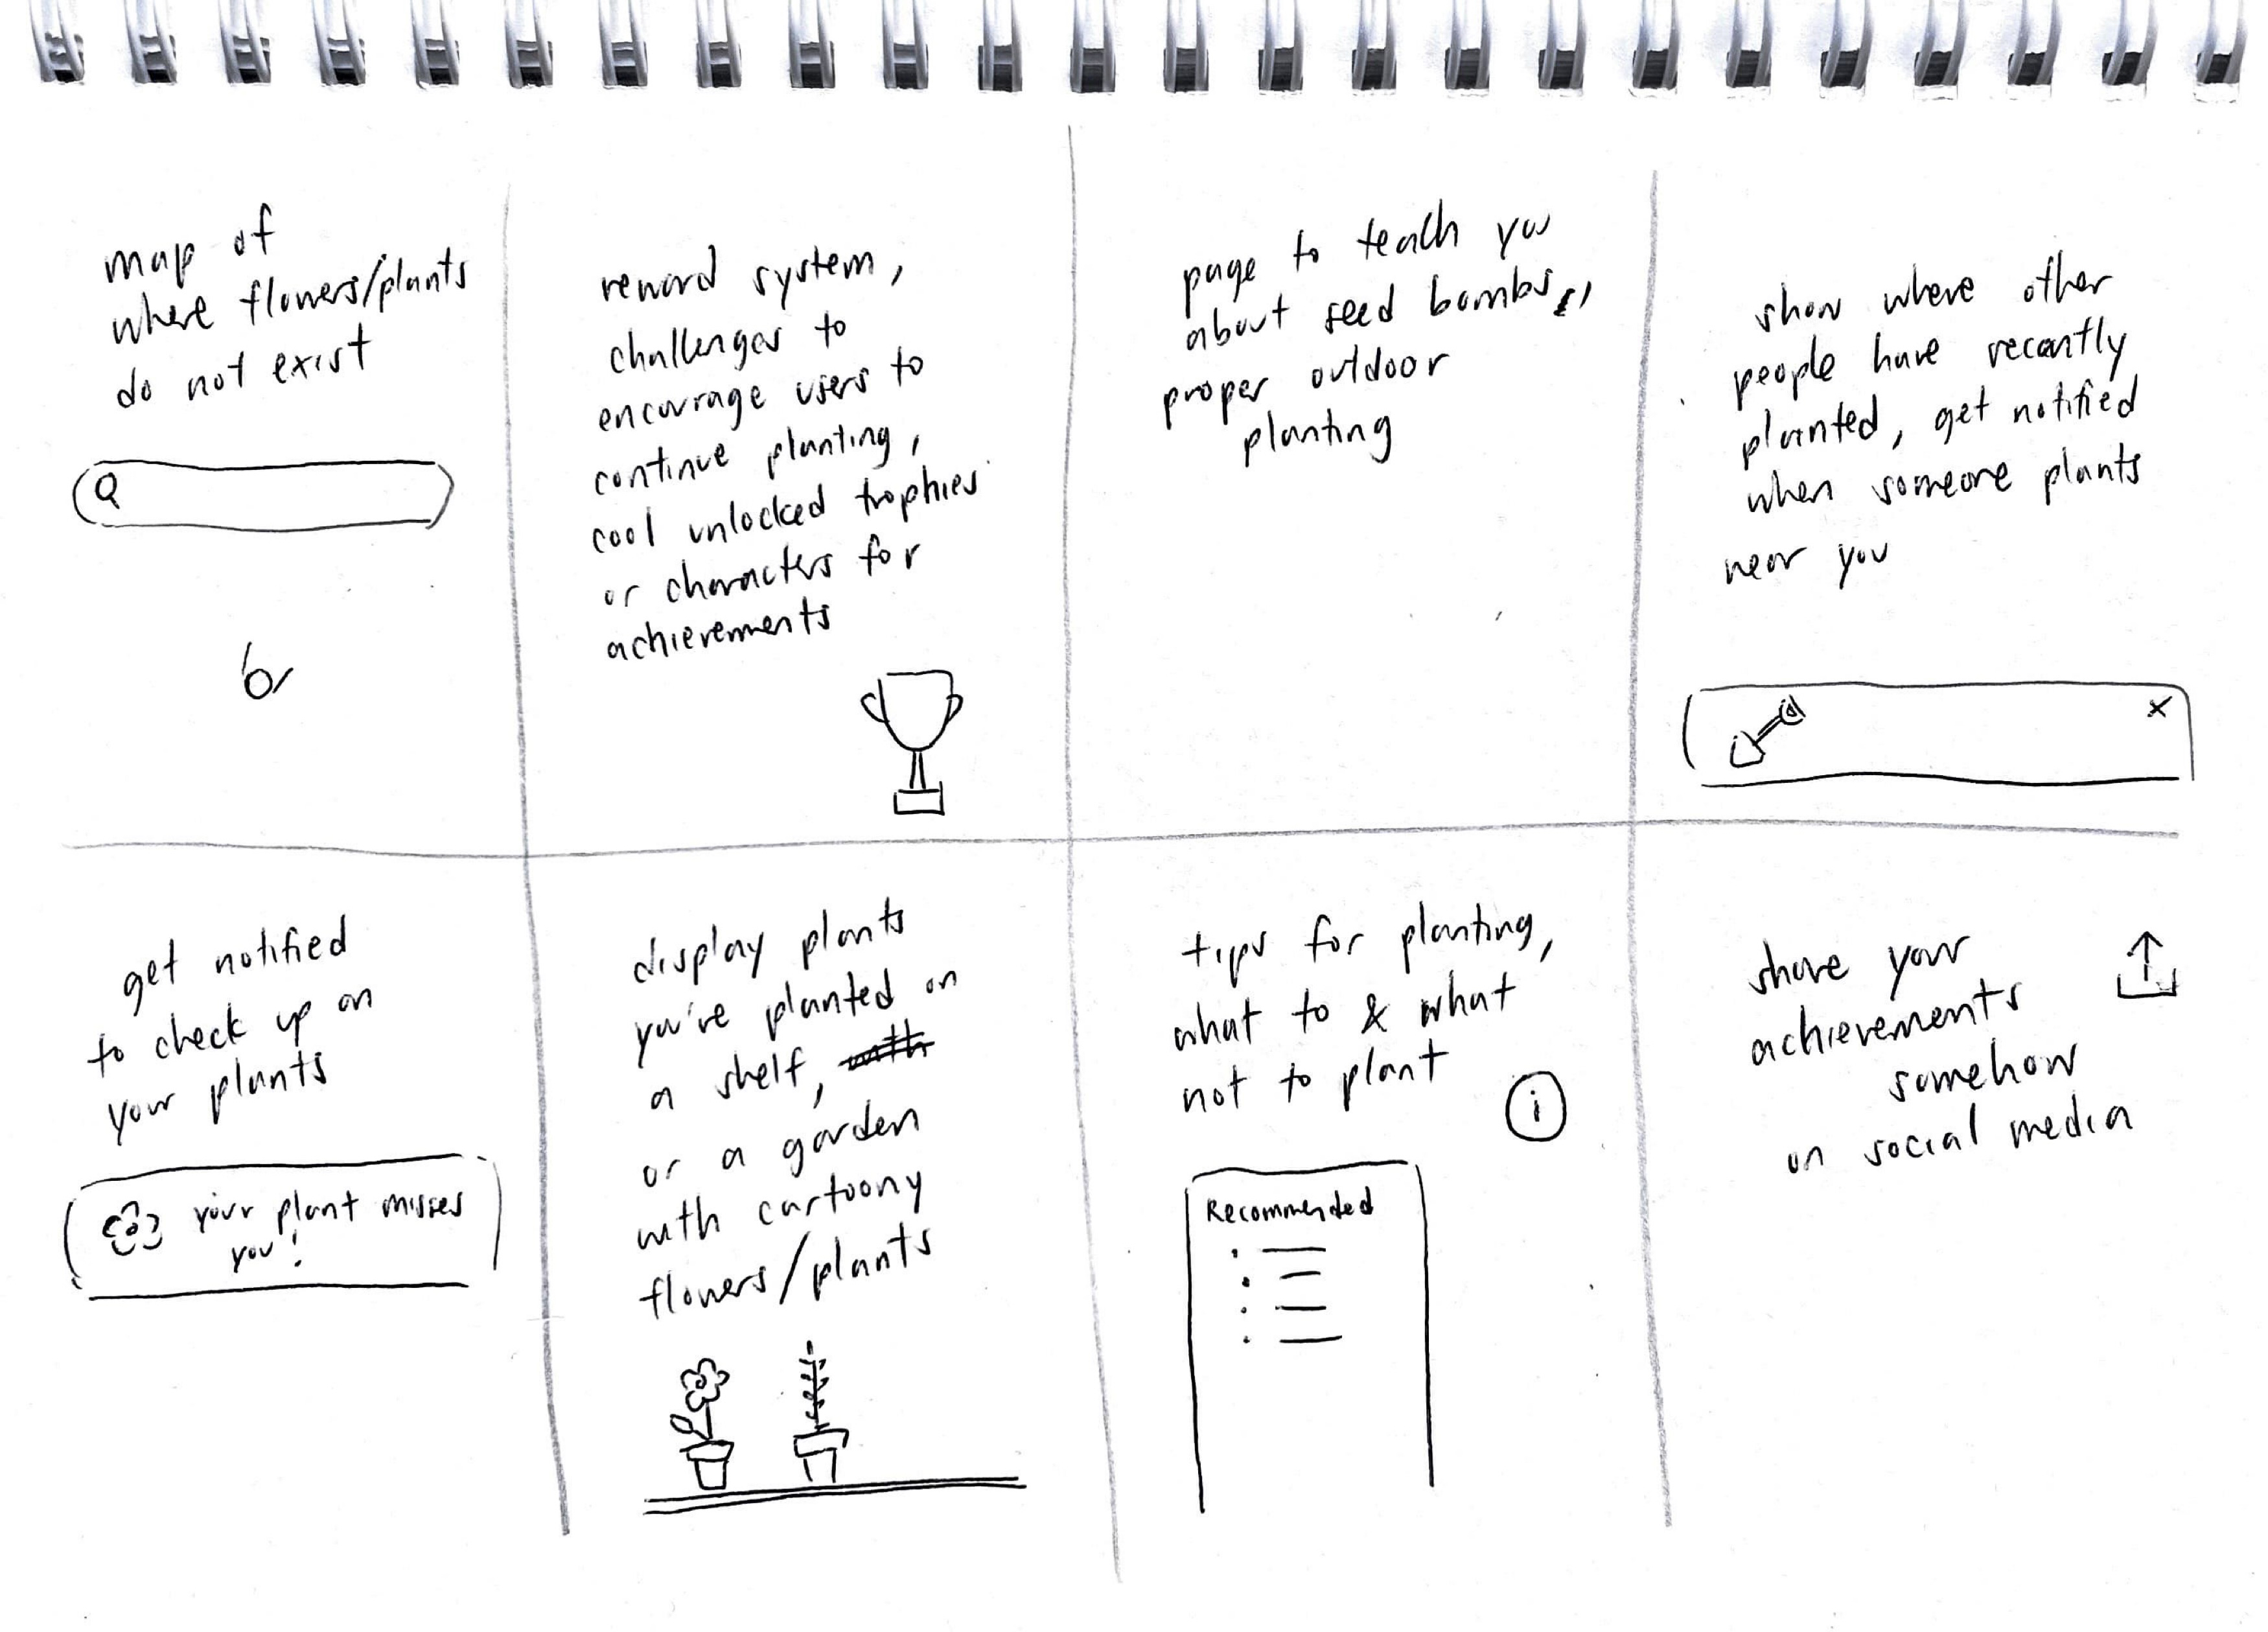 map of
where flowers/plants
do not exist
reward system,
challenges to
encourage users to
continue planting,
cool unlocked trophies
or characters for
achievements
page to teach you
about seed bombs,
proper outdoor
planting
show where other
people have recently
planted, get notified
when someone plants
near you
x
get notified
to check up on
your plants
your plant misses
you!
display plants
you've planted on
a shelf,
or a garden
with cartoony
flowers/plants
tips for planting,
what to & what
not to plant
i
Recommended
share your
achievements
somehow
on social media